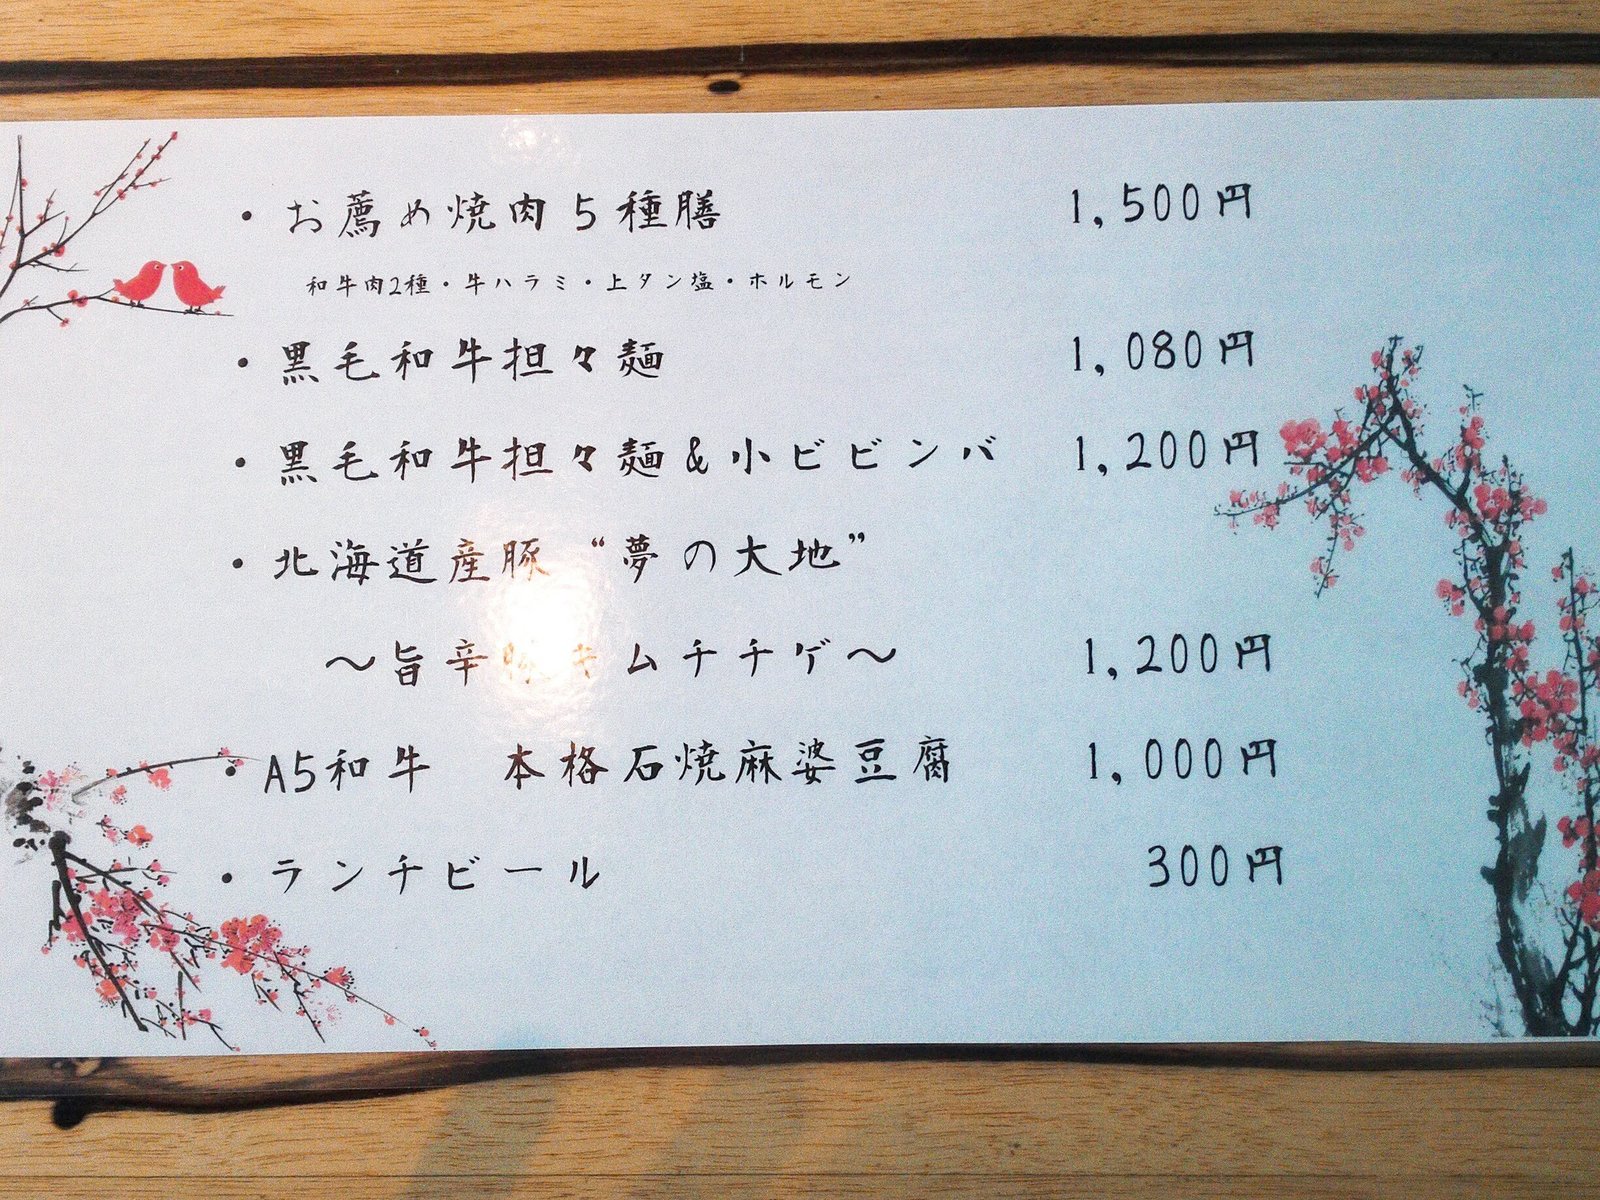 ・お薦め焼肉5種膳 1,500円
和牛肉2種・牛ハラミ・上タン塩・ホルモン
・黒毛和牛担々麺 1,080円
・黒毛和牛担々麺&小ビビンバ 1,200円
・北海道産豚“夢の大地”
～旨辛豚キムチチゲ～ 1,200円
・A5和牛 本格石焼麻婆豆腐 1,000円
・ランチビール 300円